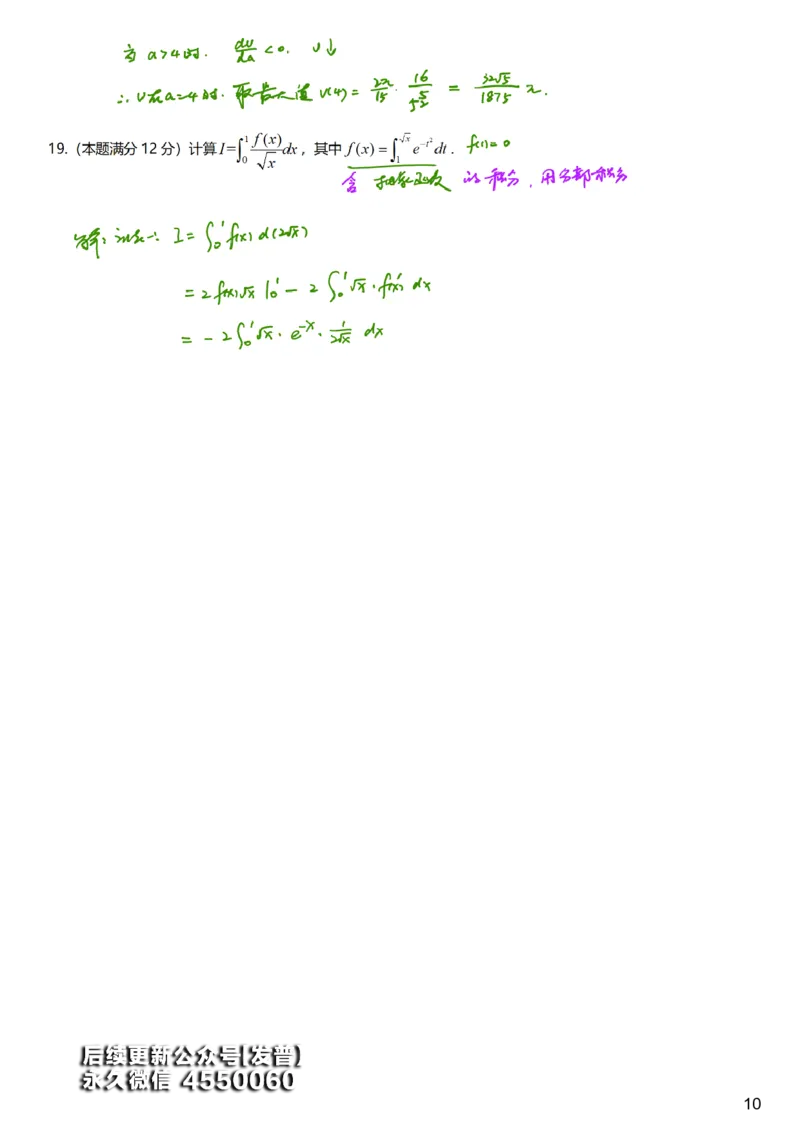 当 a>4时. du/da <0. U↓
∴ U在a=4时. 取最大值 V(4) = 2π/15 · 16/5^(5/2) = 32√5/1875 π.
19.（本题满分12分）计算I=∫₀¹ f(x)/√x dx，其中 f(x)=∫₁^√x e^(-t²) dt . f(1)=0
含 抽象函数 的积分, 用分部积分
解: 法一: I = ∫₀¹ f(x) d(2√x)
= 2 f(x)√x |₀¹ − 2 ∫₀¹ √x · f'(x) dx
= − 2 ∫₀¹ √x · e^(-x) · 1/(2√x) dx
后续更新公众号[发普]
永久微信 4550060
10